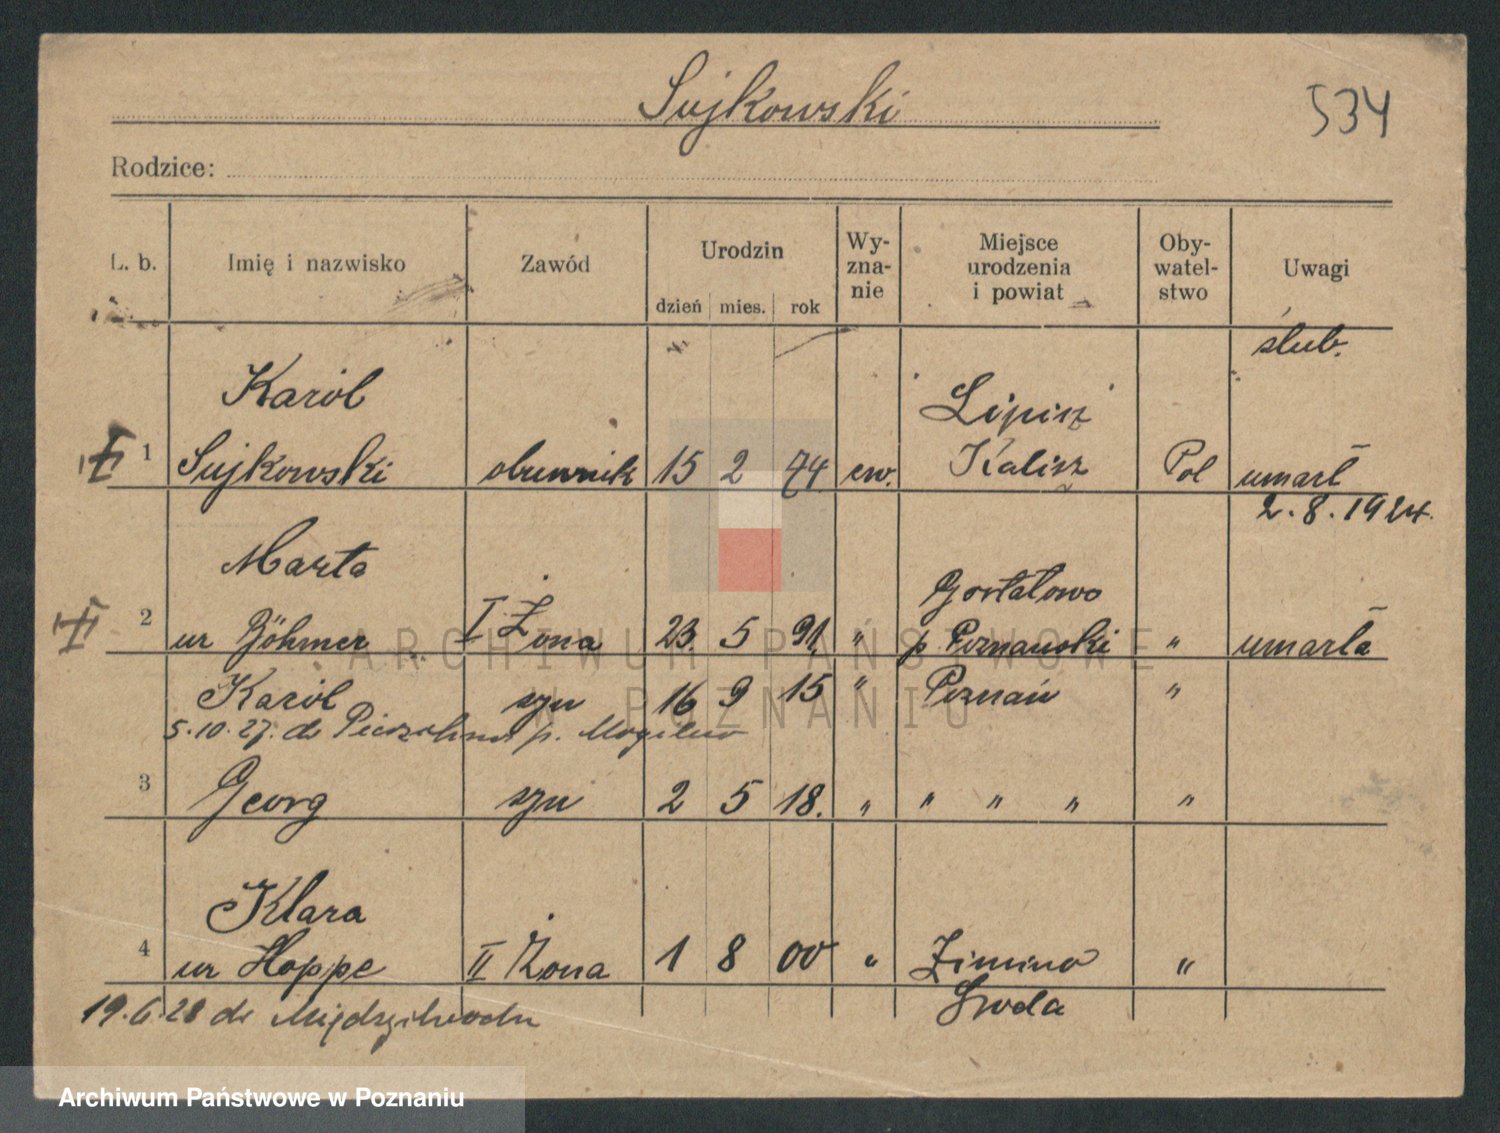 Sujkowski
534
Rodzice:
L. b. Imię i nazwisko Zawód Urodzin dzień mies. rok Wy-zna-nie Miejsce urodzenia i powiat Oby-watel-stwo Uwagi
ślub.
Karól Lipisz
1 Sujkowski obuwnik 15 2 74 ew. Kalisz Pol umarł
2.8.1924.
Marta Gortatowo
2 ur Böhmer I Żona 23. 5 91. " p. Poznański " umarła
Karól syn 16 9 15 " Poznań "
5.10.27. do p. Mogilno
3 Georg syn 2 5 18. " " " " "
Klara
4 ur Hoppe II Żona 1 8 00 " Zimino "
19.6.28 do Międzychodu Środa
ARCHIWUM PAŃSTWOWE
W POZNANIU
Archiwum Państwowe w Poznaniu